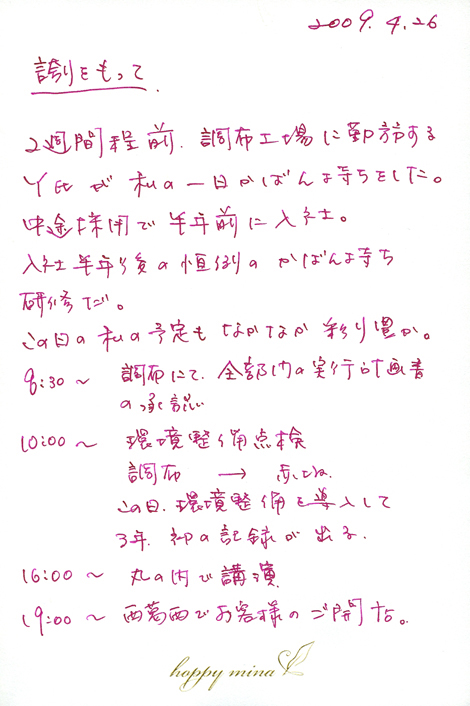 2009.4.26
誇りをもって.
2週間程前、調布工場に勤務する
Y氏が私の一日かばん持ちをした。
中途採用で半年前に入社。
入社半年後の恒例のかばん持ち
研修だ。
この日の私の予定もなかなか彩り豊か。
8:30〜 調布にて、全部門の実行計画書
の承認
10:00〜 環境整備点検
調布 →
この日、環境整備を導入して
3年、初の記録が出る.
16:00〜 丸の内で講演
19:00〜 西葛西でお客様のご開店。
happy mina